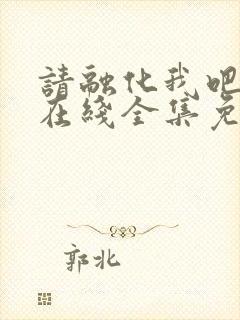 請融化我吧
在綫全集免
郭北